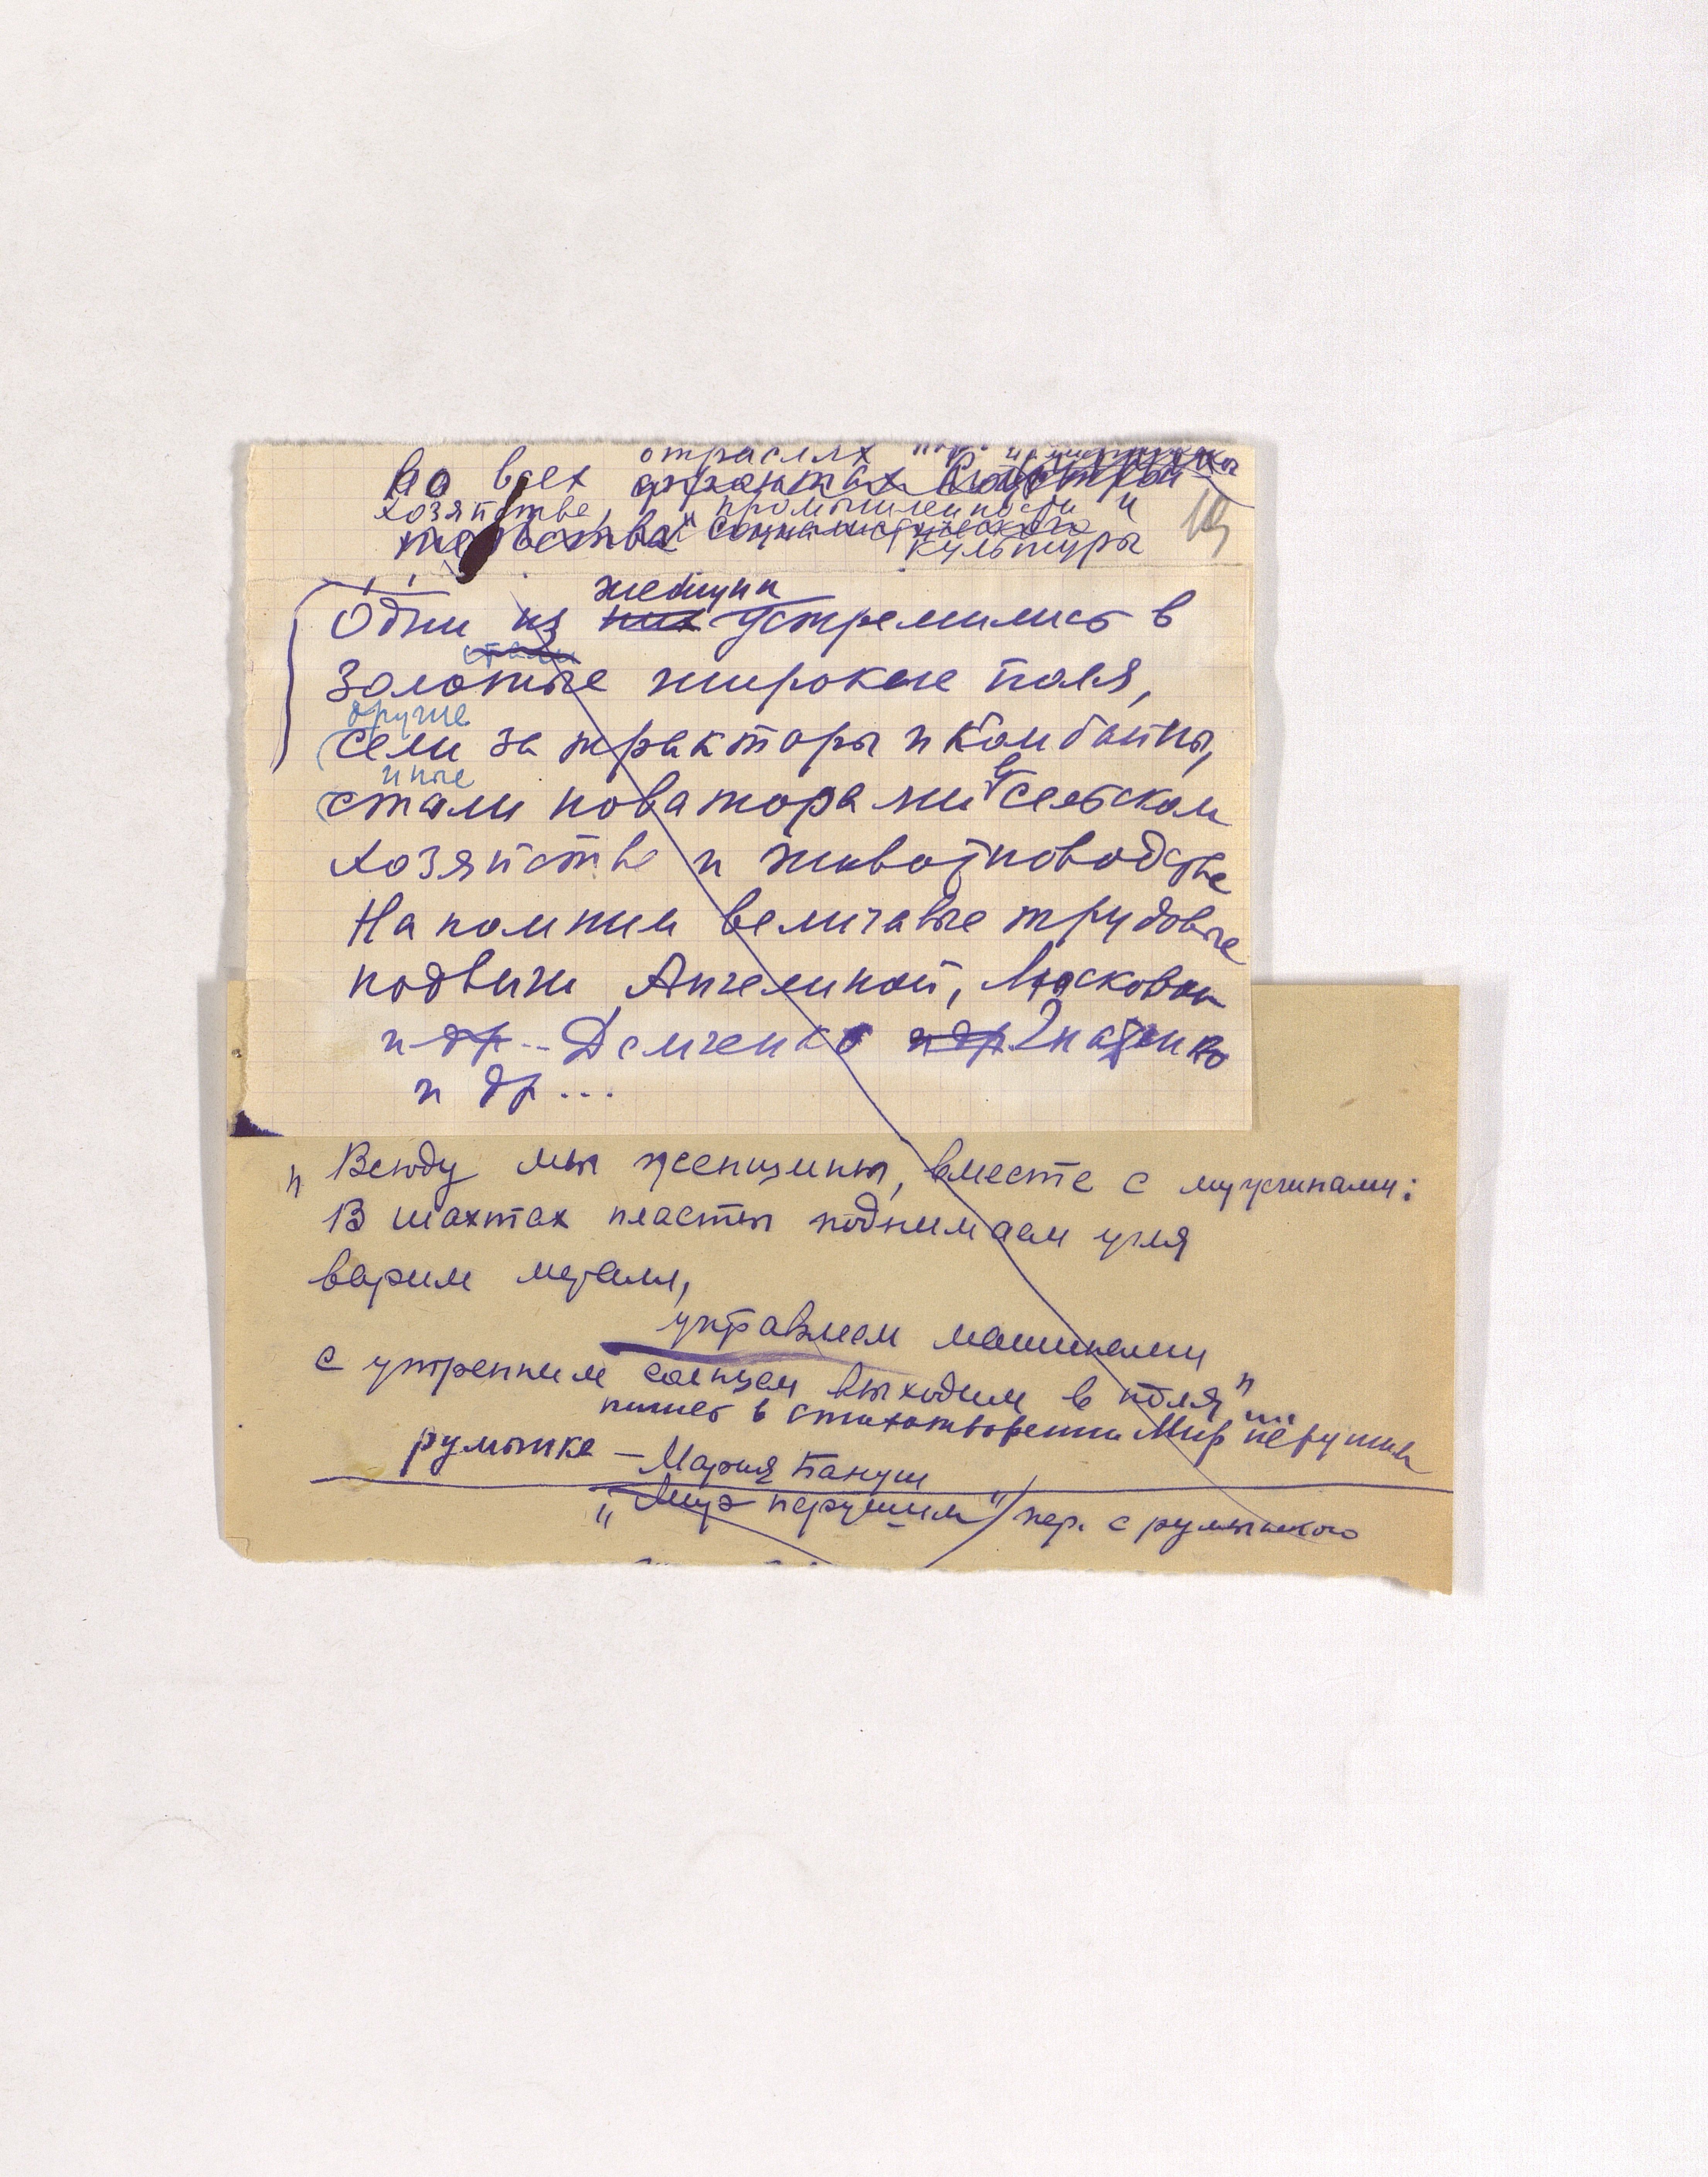 отраслях
Во всех фронтах
хозяйстве, промышленности и
тельства" социалистического
культуры
19
женщин
Одни из них устремились в
стали
золотые широкие поля,
другие
сели за тракторы и комбайны,
иные
стали новаторами в сельском
хозяйстве и животноводстве
Напомним величавые трудовые
подвиги Ангелиной,
и др... Демченко и др. Гнатенко
и др...
" Всюду мы женщины, вместе с мущинами:
В шахтах пласты поднимаем угля
варим металл,
управляем машинами
с утренним солнцем выходим в поля"
пишет в стихотворении Мир нерушим
румынка – Мария Бануш
"Мир нерушим"/пер. с румынского